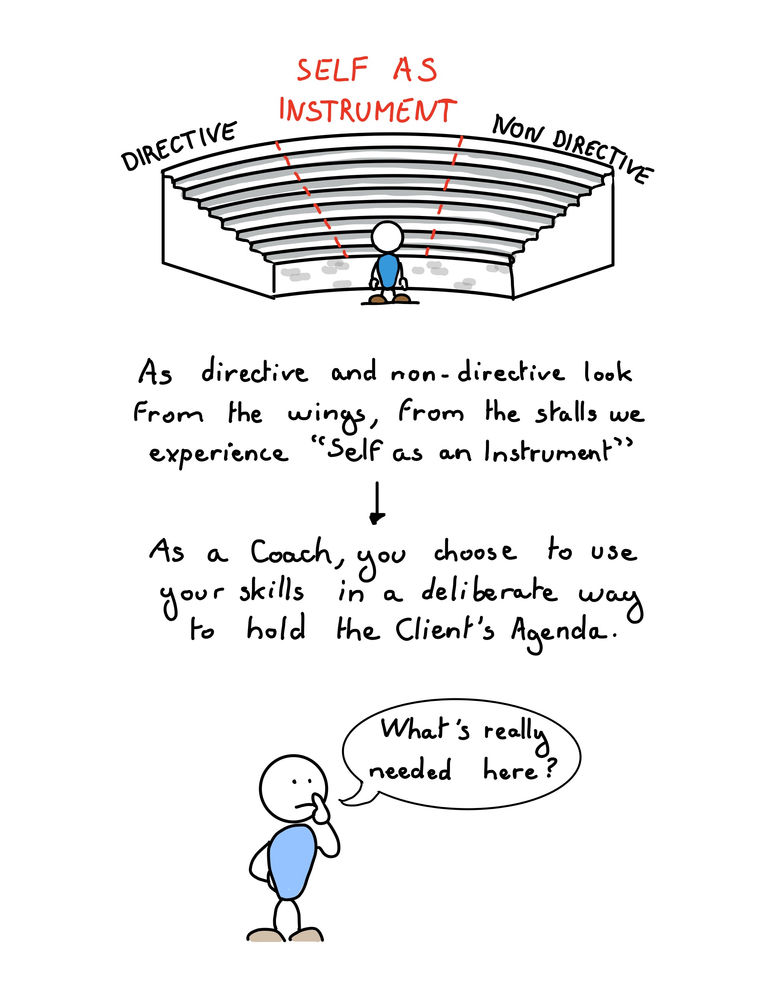 SELF AS
INSTRUMENT
DIRECTIVE
NON DIRECTIVE
As directive and non-directive look
from the wings, from the stalls we
experience "Self as an Instrument"
As a Coach, you choose to use
your skills in a deliberate way
to hold the Client's Agenda.
What's really
needed here?